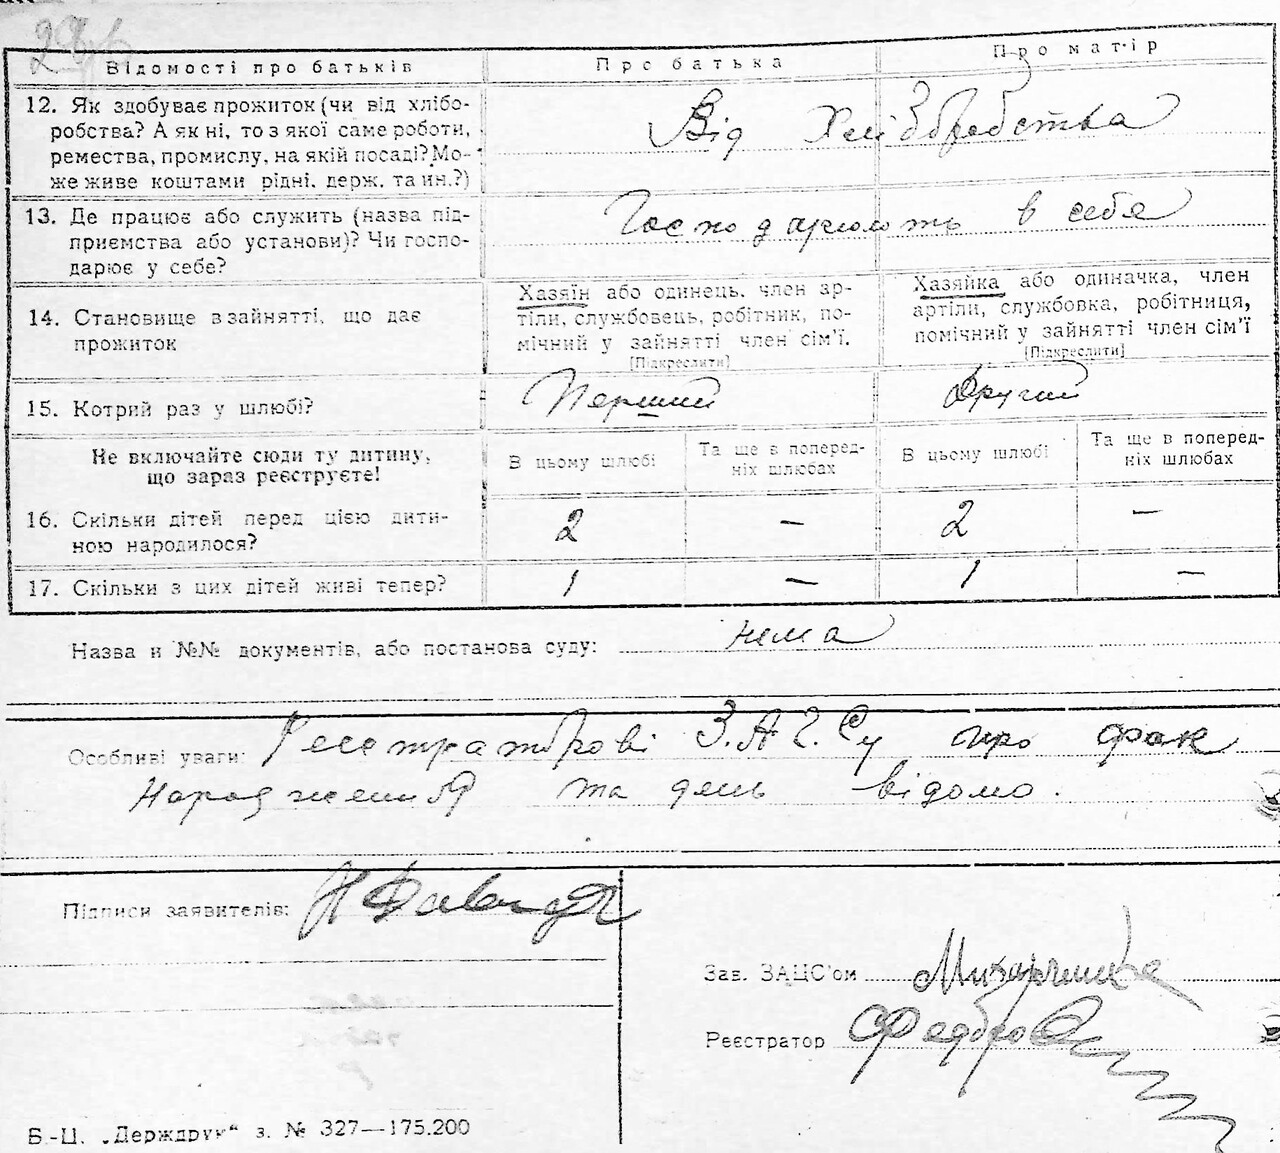 Відомості про батьків
Про батька
Про матір
12. Як здобуває прожиток (чи від хлібо-
робства? А як ні, то з якої саме роботи,
ремества, промислу, на якій посаді? Мо-
же живе коштами рідні, держ. та ин.?)
Від Хліборобства
13. Де працює або служить (назва під-
приємства або установи)? Чи госпо-
дарює у себе?
Господарюють в себя
14. Становище в зайнятті, що дає
прожиток
Хазяїн або одинець, член ар-
тіли, службовець, робітник, по-
мічний у зайнятті член сім'ї.
[Підкреслити]
Хазяйка або одиначка, член
артіли, службовка, робітниця,
помічний у зайнятті член сім'ї
[Підкреслити]
15. Котрий раз у шлюбі?
Перший
Другий
Не включайте сюди ту дитину,
що зараз реєструєте!
В цьому шлюбі
Та ще в поперед-
ніх шлюбах
В цьому шлюбі
Та ще в поперед-
ніх шлюбах
16. Скільки дітей перед цією дити-
ною народилося?
2 — 2 —
17. Скільки з цих дітей живі тепер?
1 — 1 —
Назва и №№ документів, або постанова суду: нема
Особливі уваги: Реєстраторові З.А.Г.Су про фак
Народження та день відомо.
Підписи заявителів:
Зав. ЗАЦС'ом
Реєстратор
Б.-Ц. „Держдрук“ з. № 327—175.200